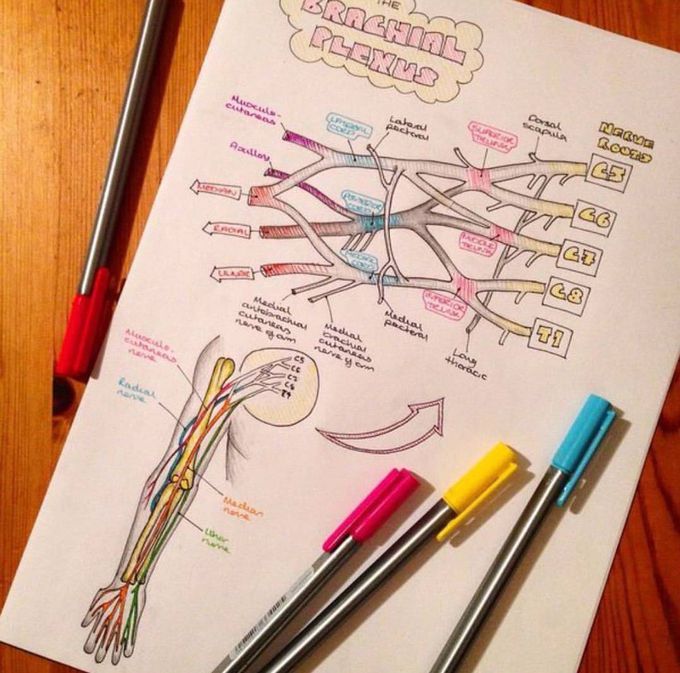 THE
BRACHIAL
PLEXUS
Musculo-
cutaneas
Lateral
pectoral
SUPERIOR
TRUNK
Dorsal
scapula
NERVE
ROOTS
C5
Axillary
MEDIAN
POSTERIOR
CORD
C6
RADIAL
MIDDLE
TRUNK
C7
ULNAR
C8
INFERIOR
TRUNK
T1
Medial
antibrachial
cutaneas
nerve of arm
Medial
brachial
cutaneas
nerve of arm
Medial
pectoral
Long
thoracic
Musculo-
cutaneas
nerve
C5
C6
C7
C8
T1
Radial
nerve
Median
nerve
Ulnar
nerve